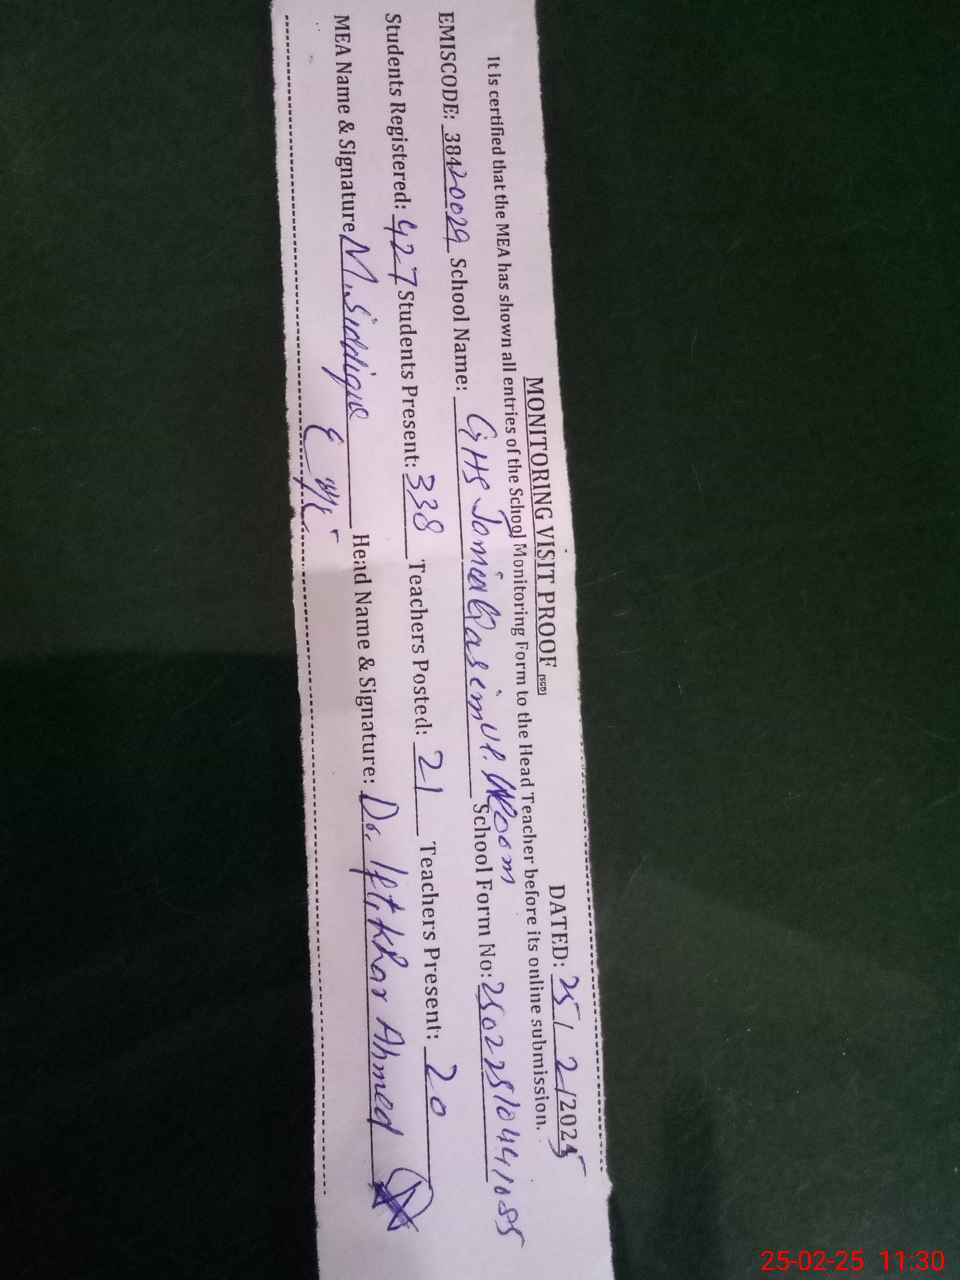 MONITORING VISIT PROOF (SGD) DATED: 25/2/2025
It is certified that the MEA has shown all entries of the School Monitoring Form to the Head Teacher before its online submission.
EMISCODE: 38420029 School Name: GHS Jamia Qasim Ul Uloom School Form No: 25022510441085
Students Registered: 427 Students Present: 338 Teachers Posted: 21 Teachers Present: 20
MEA Name & Signature M. Siddique Head Name & Signature: Dr. Iftikhar Ahmed
25-02-25 11:30